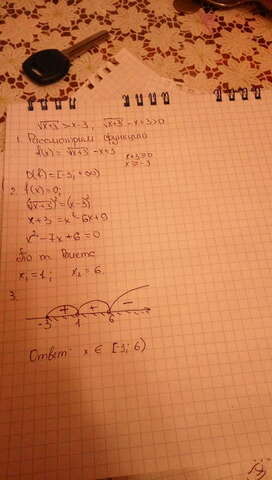 √x+3 > x-3, √x+3 -x+3>0
1. Рассмотрим функцию
f(x)= √x+3 -x+3
x+3≥0
x≥-3
D(f)=[-3;+∞)
2. f(x)=0;
(√x+3)²=(x-3)²
x+3=x²-6x+9
x²-7x+6=0
По т. Виета
x₁=1; x₂=6
3.
+ + -
-3 1 6
Ответ: x ∈ [-3; 6)